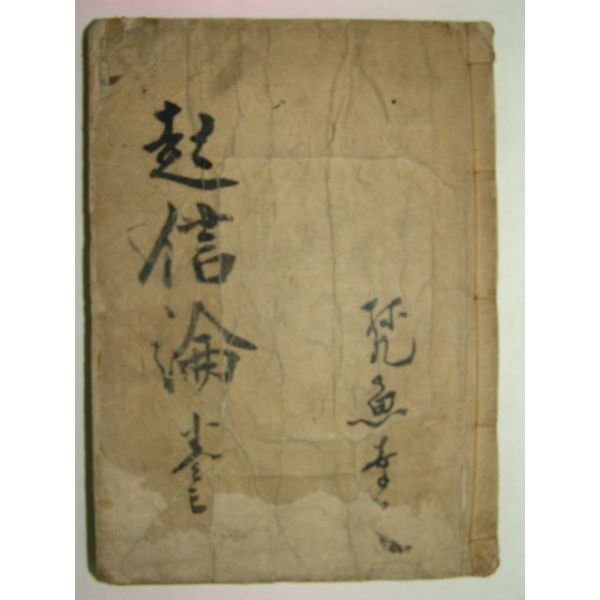 梵魚寺
起信論